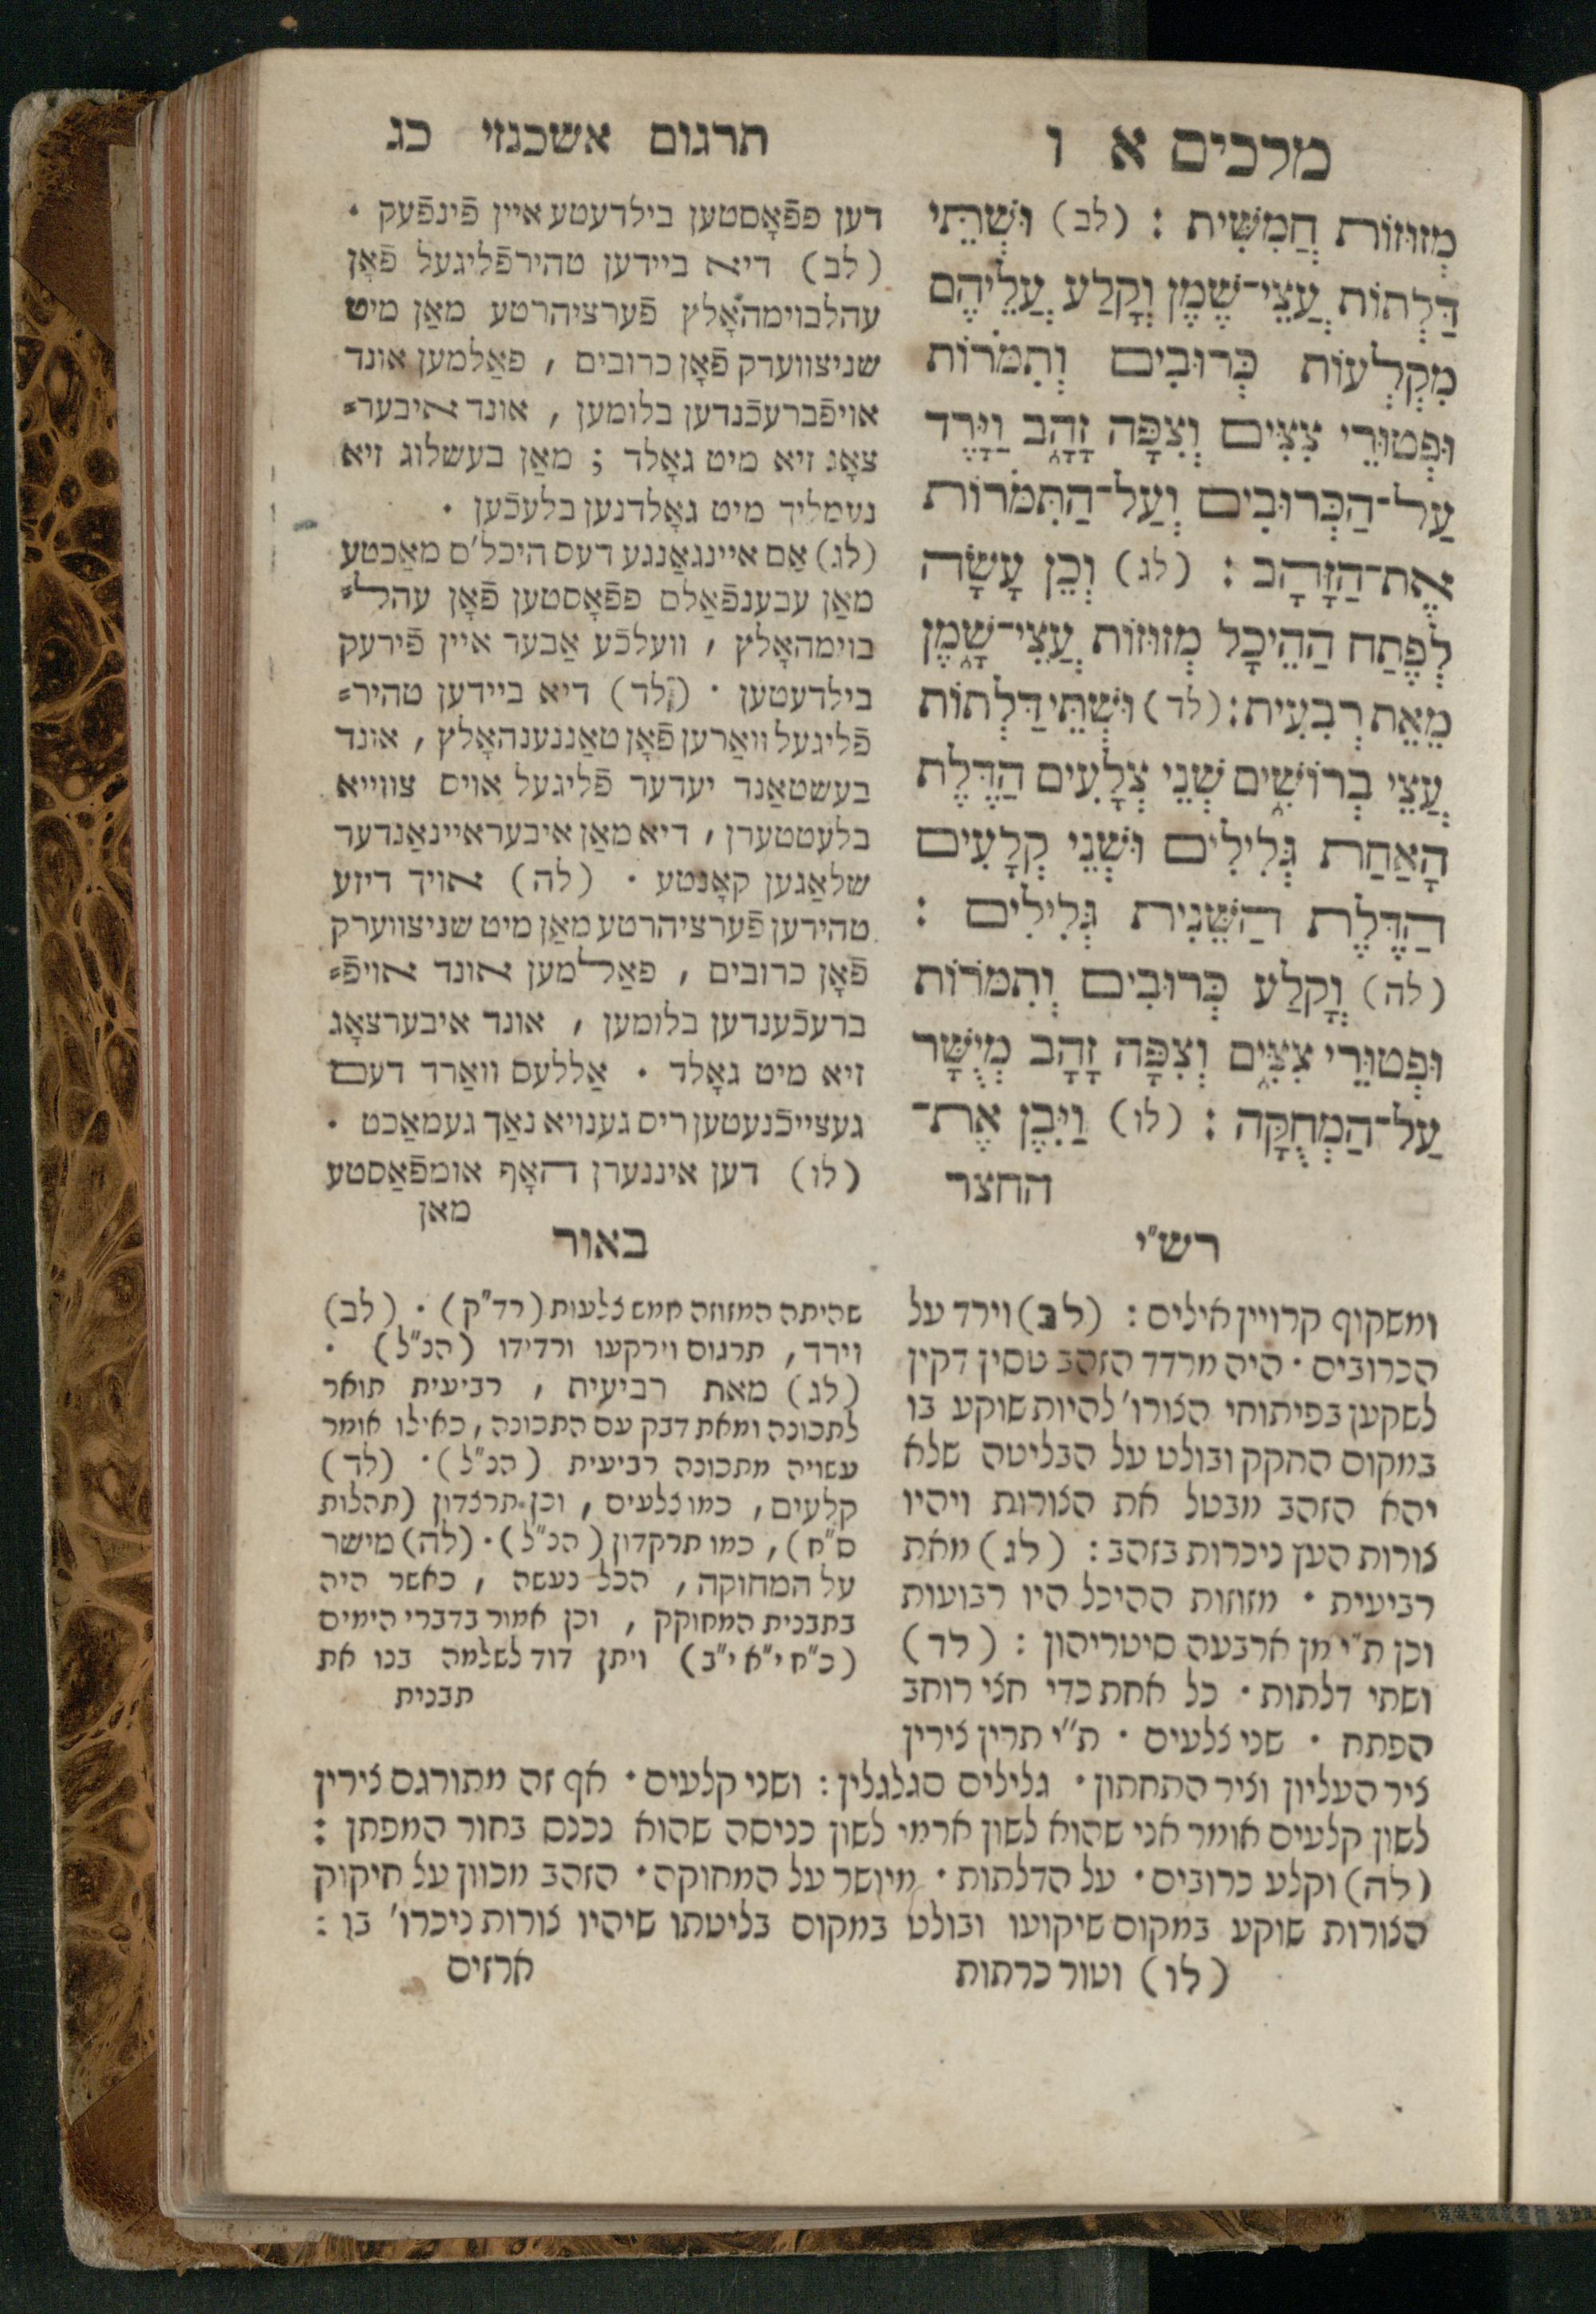 מלכים א ו
תרגום אשכנזי כג
מְזוּזוֹת חֲמִשִׁית : (לב) וּשְׁתֵּי
דַּלְתוֹת עֲצֵי־שֶׁמֶן וְקָלַע עֲלֵיהֶם
מִקְלְעוֹת כְּרוּבִים וְתִמֹרוֹת
וּפְטוּרֵי צִצִּים וְצִפָּה זָהָב וַיָּרֶד
עַל־הַכְּרוּבִים וְעַל־הַתִּמֹרוֹת
אֶת־הַזָּהָב : (לג) וְכֵן עָשָׂה
לְפֶתַח הַהֵיכָל מְזוּזוֹת עֲצֵי־שָׁמֶן
מֵאֵת רְבִעִית : (לד) וּשְׁתֵּי דַּלְתוֹת
עֲצֵי בְרוֹשִׁים שְׁנֵי צְלָעִים הַדֶּלֶת
הָאַחַת גְּלִילִים וּשְׁנֵי קְלָעִים
הַדֶּלֶת הַשֵּׁנִית גְּלִילִים :
(לה) וְקָלַע כְּרוּבִים וְתִמֹרוֹת
וּפְטוּרֵי צִצִּים וְצִפָּה זָהָב מְיֻשָּׁר
עַל־הַמְּחֻקָּה : (לו) וַיִּבֶן אֶת־
החצר
דען פפֿאָסטען בילדעטע איין פֿינפֿעק .
(לב) דיא ביידען טהירפֿליגעל פֿאָן
עהלבוימהאָלץ פֿערציהרטע מאַן מיט
שניצווערק פֿאָן כרובים , פאַלמען אונד
אויפֿברעכֿנדען בלומען , אונד איבער=
צאָג זיא מיט גאָלד ; מאַן בעשלוג זיא
נעמליך מיט גאָלדנען בלעכֿען .
(לג) אַם איינגאַנגע דעס היכל'ס מאַכטע
מאַן עבענפֿאַלס פפֿאָסטען פֿאָן עהל=
בוימהאָלץ , וועלכֿע אַבער איין פֿירעק
בילדעטען . (לד) דיא ביידען טהיר=
פֿליגעל וואַרען פֿאָן טאַננענהאָלץ , אונד
בעשטאַנד יעדער פֿליגעל אויס צווייא
בלעטטערן , דיא מאַן איבעראיינאַנדער
שלאַגען קאָנטע . (לה) אויך דיזע
טהירען פֿערציהרטע מאַן מיט שניצווערק
פֿאָן כרובים , פאַלמען אונד אויפֿ=
ברעכֿענדען בלומען , אונד איבערצאָג
זיא מיט גאָלד . אַללעס וואַרד דעם
געצייכֿנעטען ריס גענויא נאַך געמאַכט .
(לו) דען איננערן האָף אומפֿאַסטע
מאן
רש"י
ומשקוף קרויין אילים : (לב) וירד על
הכרובים . היה מרדד הזהב טסין דקין
לשקען בפיתוחי הצורו' להיות שוקע בו
במקום החקק ובולט על הבליטה שלא
יהא הזהב מבטל את הצורות ויהיו
צורות העץ ניכרות בזהב : (לג) מאת
רביעית . מזוזות ההיכל היו רבועות
וכן ת"י מן ארבעה סיטריהון : (לד)
ושתי דלתות . כל אחת כדי חצי רוחב
הפתח . שני צלעים . ת"י תרין צירין
ציר העליון וציר התחתון . גלילים סגלגלין : ושני קלעים . אף זה מתורגם צירין
לשון קלעים אומר אני שהוא לשון ארמי לשון כניסה שהוא נכנס בחור המפתן :
(לה) וקלע כרובים . על הדלתות . מיושר על המחוקה . הזהב מכוון על חיקוק
הצורות שוקע במקום שיקועו ובולט במקום בליטתו שיהיו צורות ניכרו' בו :
(לו) וטור כרתות
ארזים
באור
שהיתה המזוזה חמש צלעות (רד"ק) . (לב)
וירד , תרגום וירקעו ורדידו (הנ"ל) .
(לג) מאת רביעית , רביעית תואר
לתכונה ומאת דבק עם התכונה , כאילו אומר
עשויה מתכונה רביעית (הנ"ל) . (לד)
קלעים , כמו צלעים , וכן תרצדון (תהלות
ס"ח) , כמו תרקדון (הנ"ל) . (לה) מישר
על המחוקה , הכל נעשה , כאשר היה
בתבנית המחוקק , וכן אמור בדברי הימים
(כ"ח י"א י"ב) ויתן דוד לשלמה בנו את
תבנית